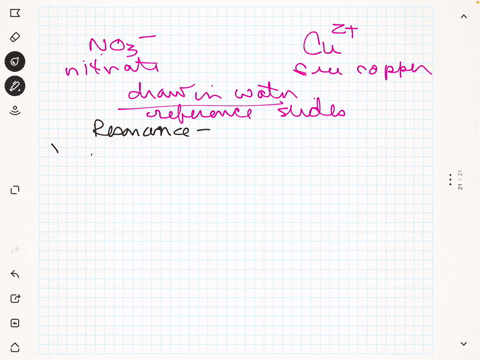 NO3⁻ Cu²⁺
nitrate free copper
draw in water
reference slides
Resonance -
21 / 21